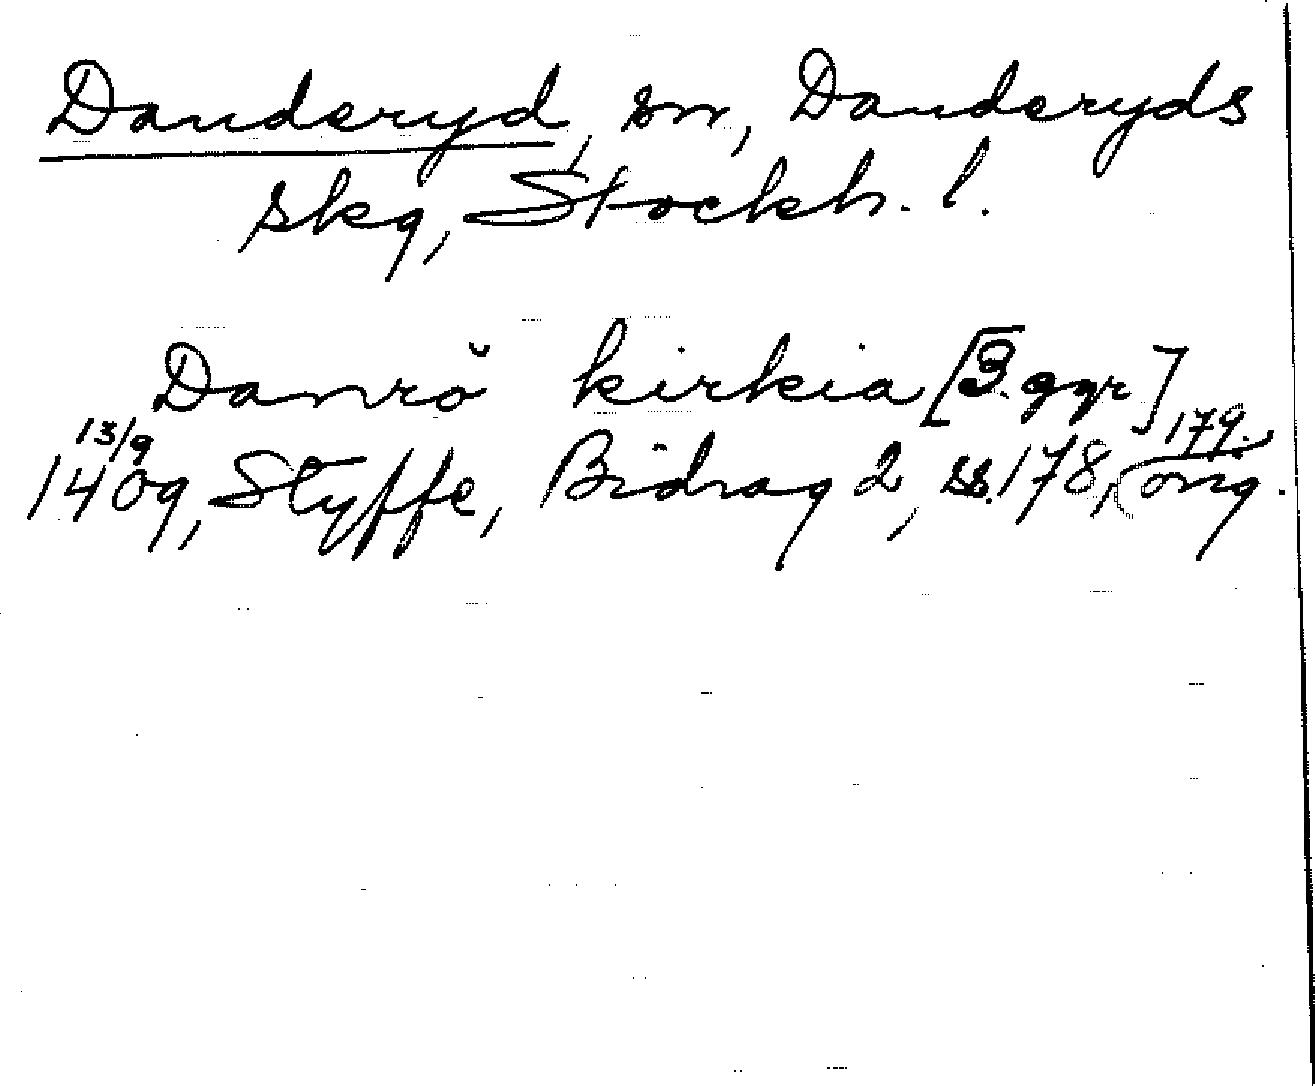 Danderyd, sn, Danderyds
skg, Stockh. l.
Danrö kirkia [3 ggr]
13/9 1409, Styffe, Bidrag 2, ss. 178, 179. orig.